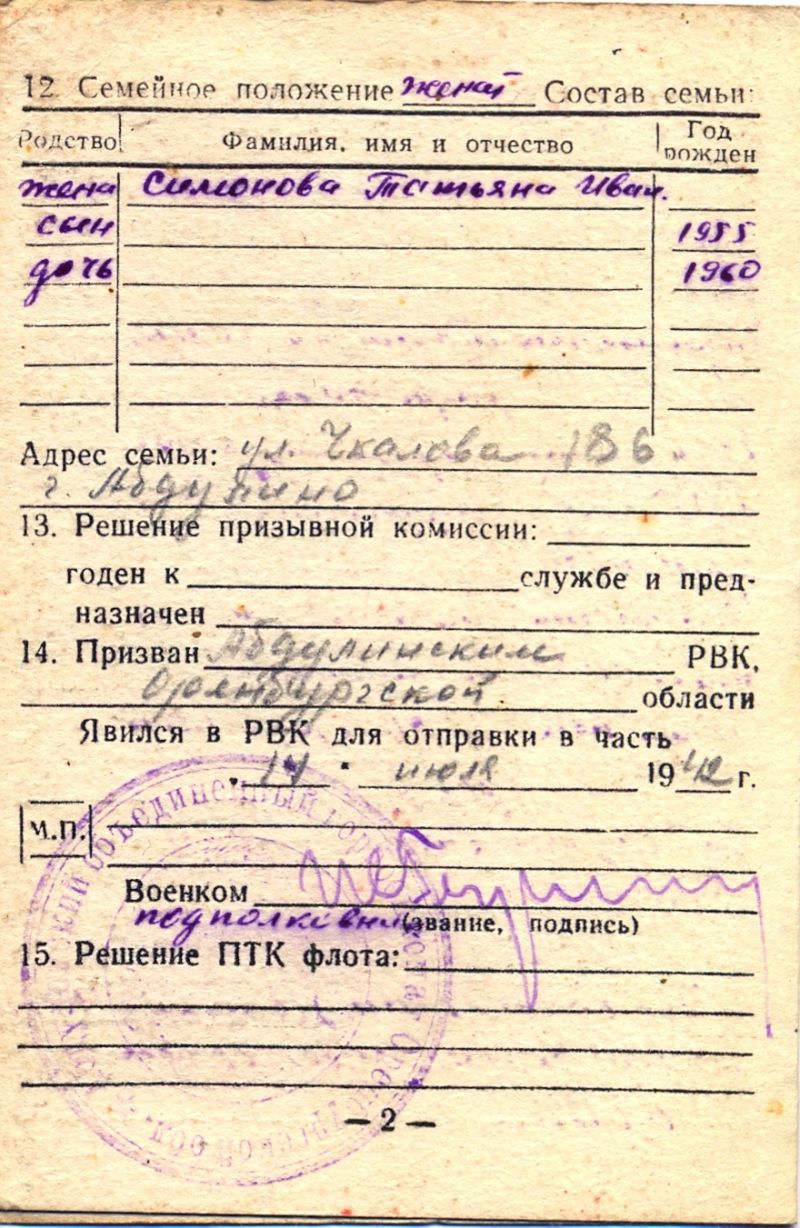 12. Семейное положение женат Состав семьи:
Родство Фамилия, имя и отчество Год рожден
жена Симонова Татьяна Иван.
сын 1955
дочь 1960
Адрес семьи: ул. Чкалова
г. Абдулино
13. Решение призывной комиссии:
годен к службе и пред-
назначен
14. Призван Абдулинским РВК,
Оренбургской области
Явился в РВК для отправки в часть
"14" июля 1942 г.
М.П.
Военком
подполковник (звание, подпись)
15. Решение ПТК флота:
— 2 —